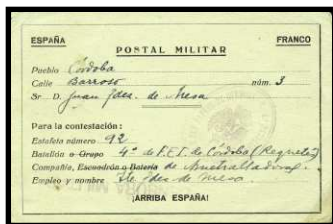 ESPAÑA FRANCO
POSTAL MILITAR
Pueblo Córdoba
Calle Barroso núm. 3
Sr. D. Juan Fdez. de Mesa
Para la contestación:
Estafeta número 92
Batallón o Grupo 4º de F.E.T. de Córdoba (Requetés)
Compañía, Escuadrón o Batería de Ametralladoras
Empleo y nombre Fdez de Mesa
¡ARRIBA ESPAÑA!